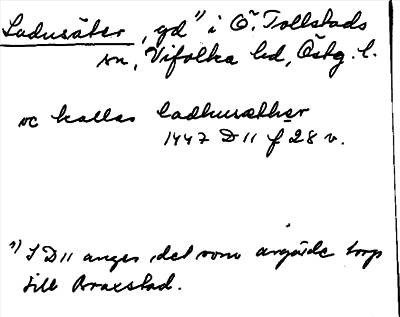 Ladusäter, gd¹⁾ i Ö. Tollstads
sn, Vifolka hd, Östg. l.
oc kallas ladhusæther
1447 D 11 f 28 v.
¹⁾ I D 11 anges det som avgärda torp
till Braxstad.